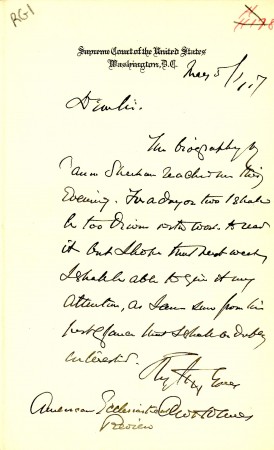 RG1
Supreme Court of the United States
Washington, D.C.
May 5/17
Dear Sir.
The biography of
Sheehan reached me this
evening. For a day or two I shall
be too driven with work to read
it but I hope that next week
I shall be able to give it my
attention, as I am sure from the
first glance that I shall be deeply
interested.
Very truly yours
OW Holmes
American Ecclesiastical
Review